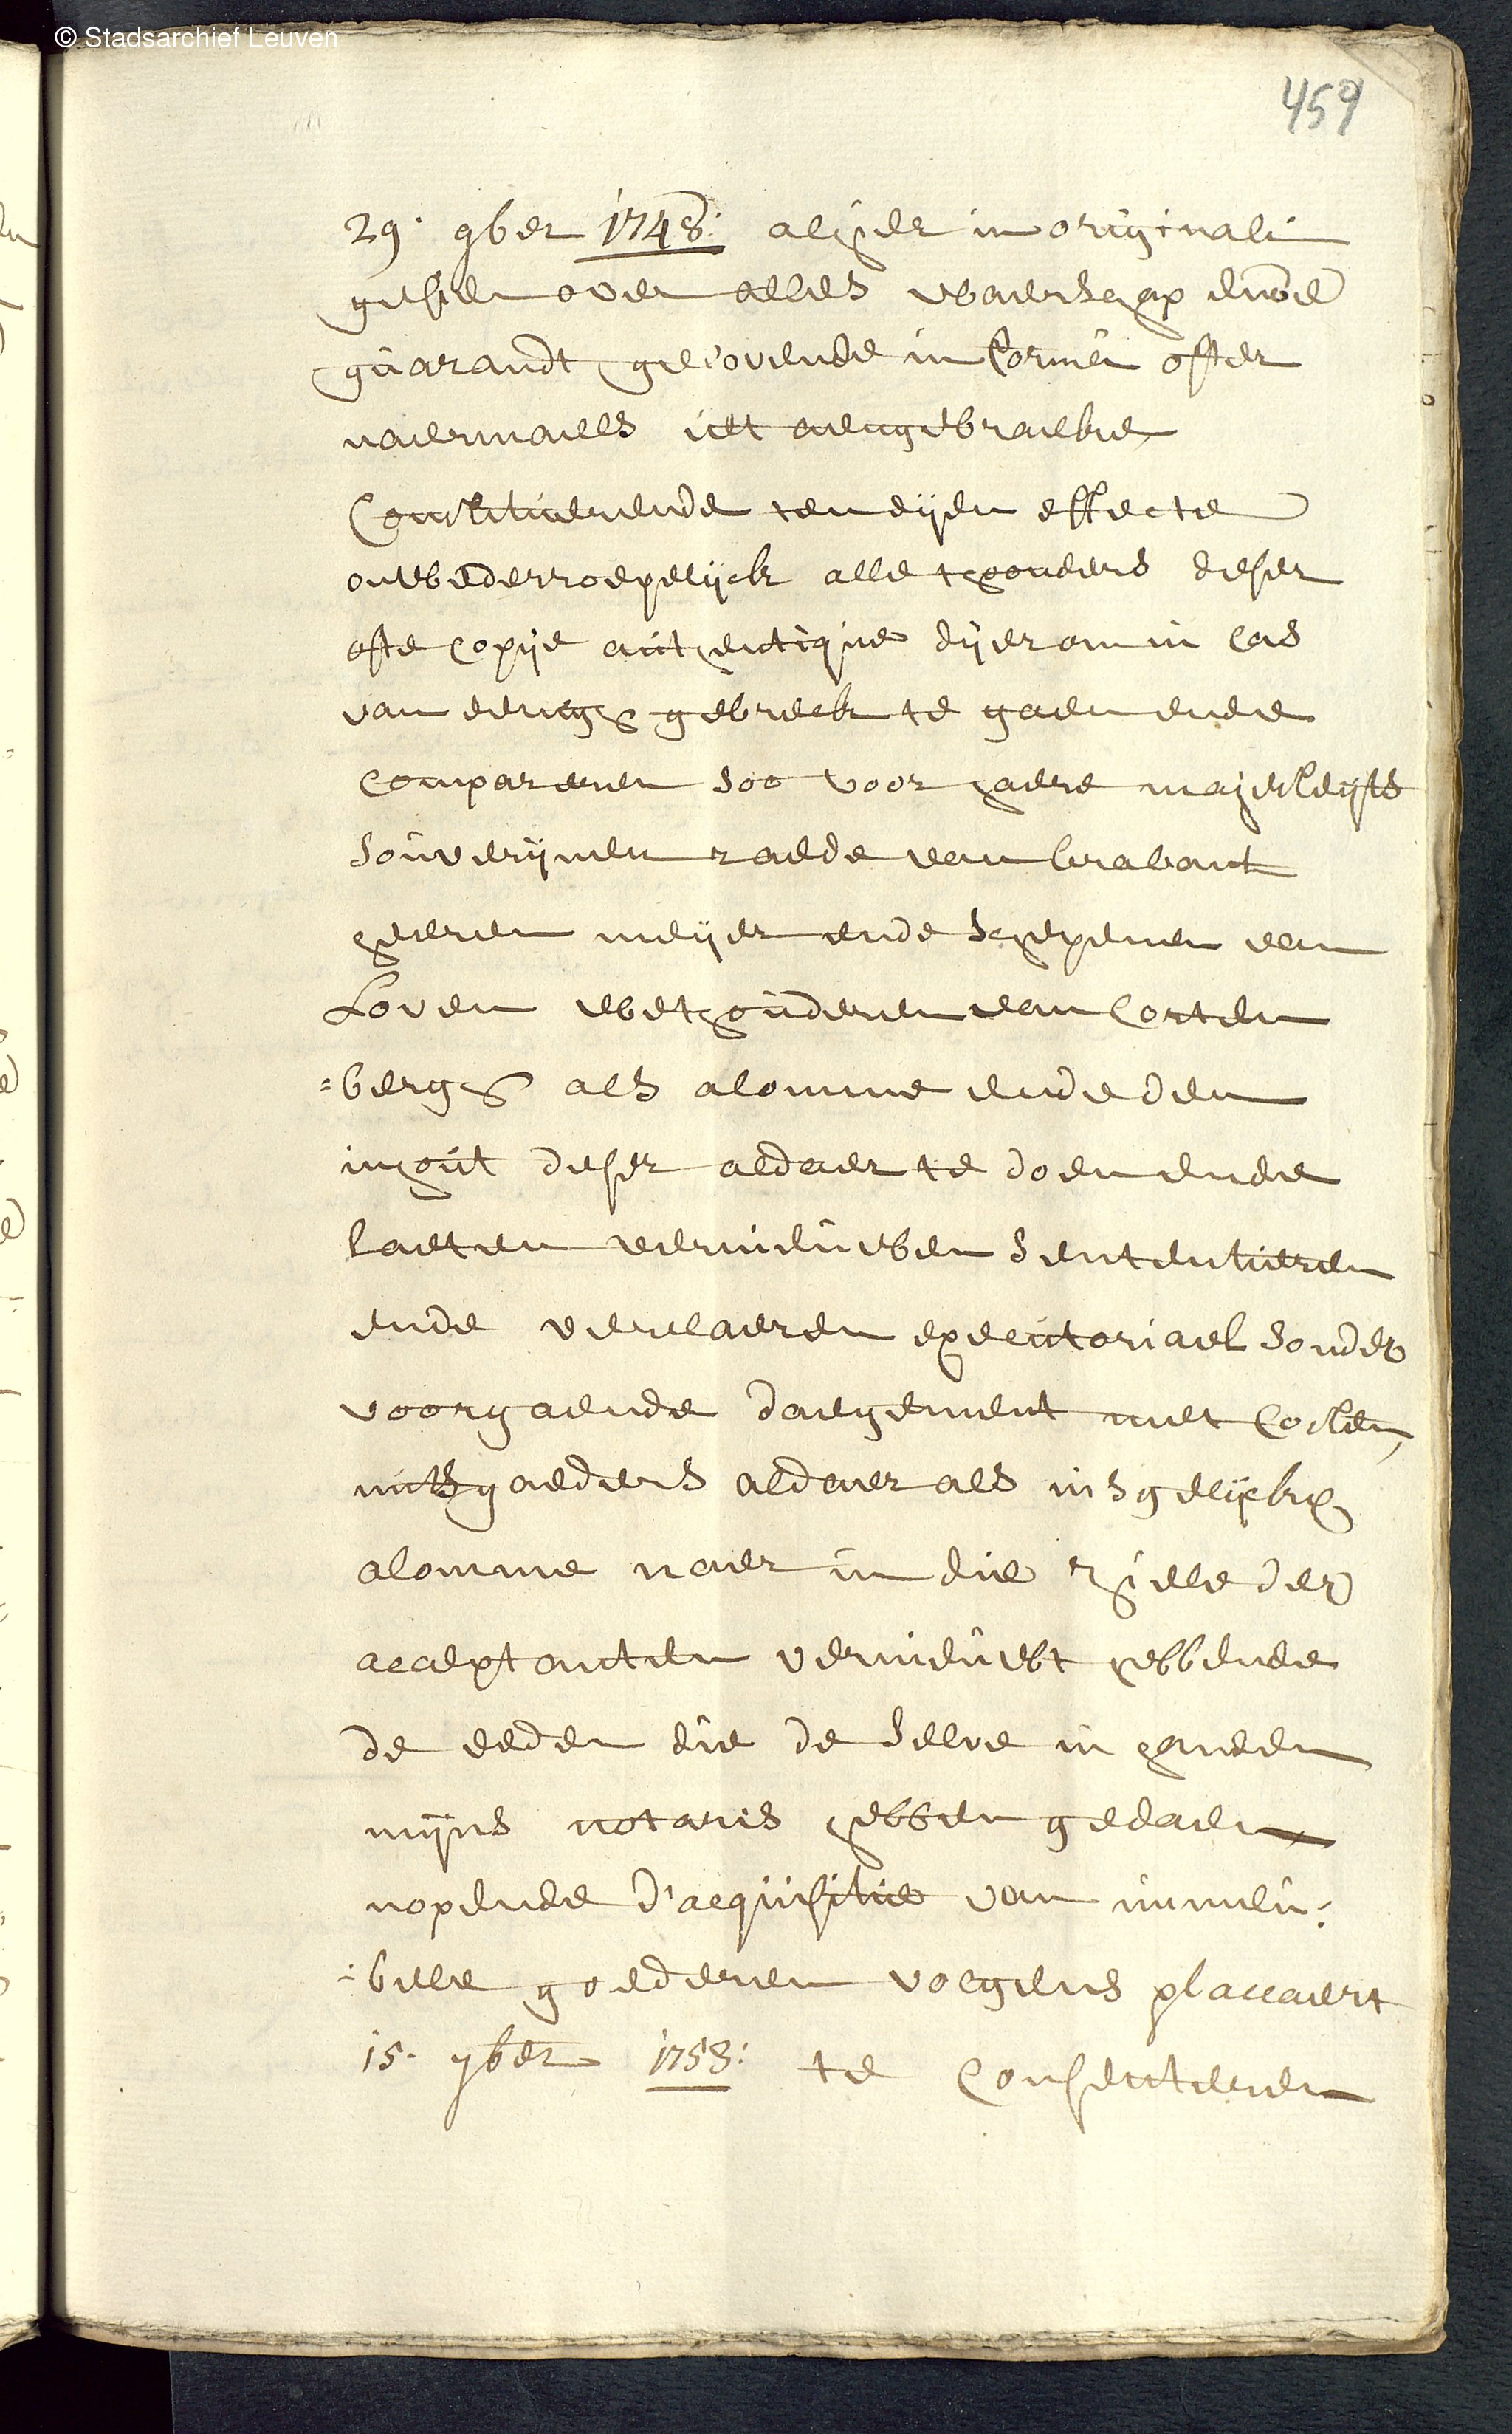 © Stadsarchief Leuven
459
29. 9ber 1748: alhier in originali
gesien over alles waerschap ende
guarandt geloovende in forma ofter
naermaels iet aengebraeke
Constituerende ten eijen effecte
onwederroepelijck alle thoonders deser
ofte copije authentique dijer om in cas
van eenigh gebreck te gaen ende
compareren soo voor haere majesteyts
souverijnen raede van brabant
heeren meijer ende schepenen van
Loven wethouderen van Corten
=bergh als alomme ende den
inhout deser aldaer te doen ende
laeten vernieuwen sententieren
ende verclaeren executoriael sonder
voorgaende daegement met costen
mitsgaeders aldaer als insgelijckx
alomme naer in die rhiele der
acceptanten vernieuwt hebbende
de eeden die de selve in handen
mijns notaris hebben gedaen
nopende d'acquisitie van immeu:
:bele goederen volgens placcaert
15. 7ber 1753: te consenteren